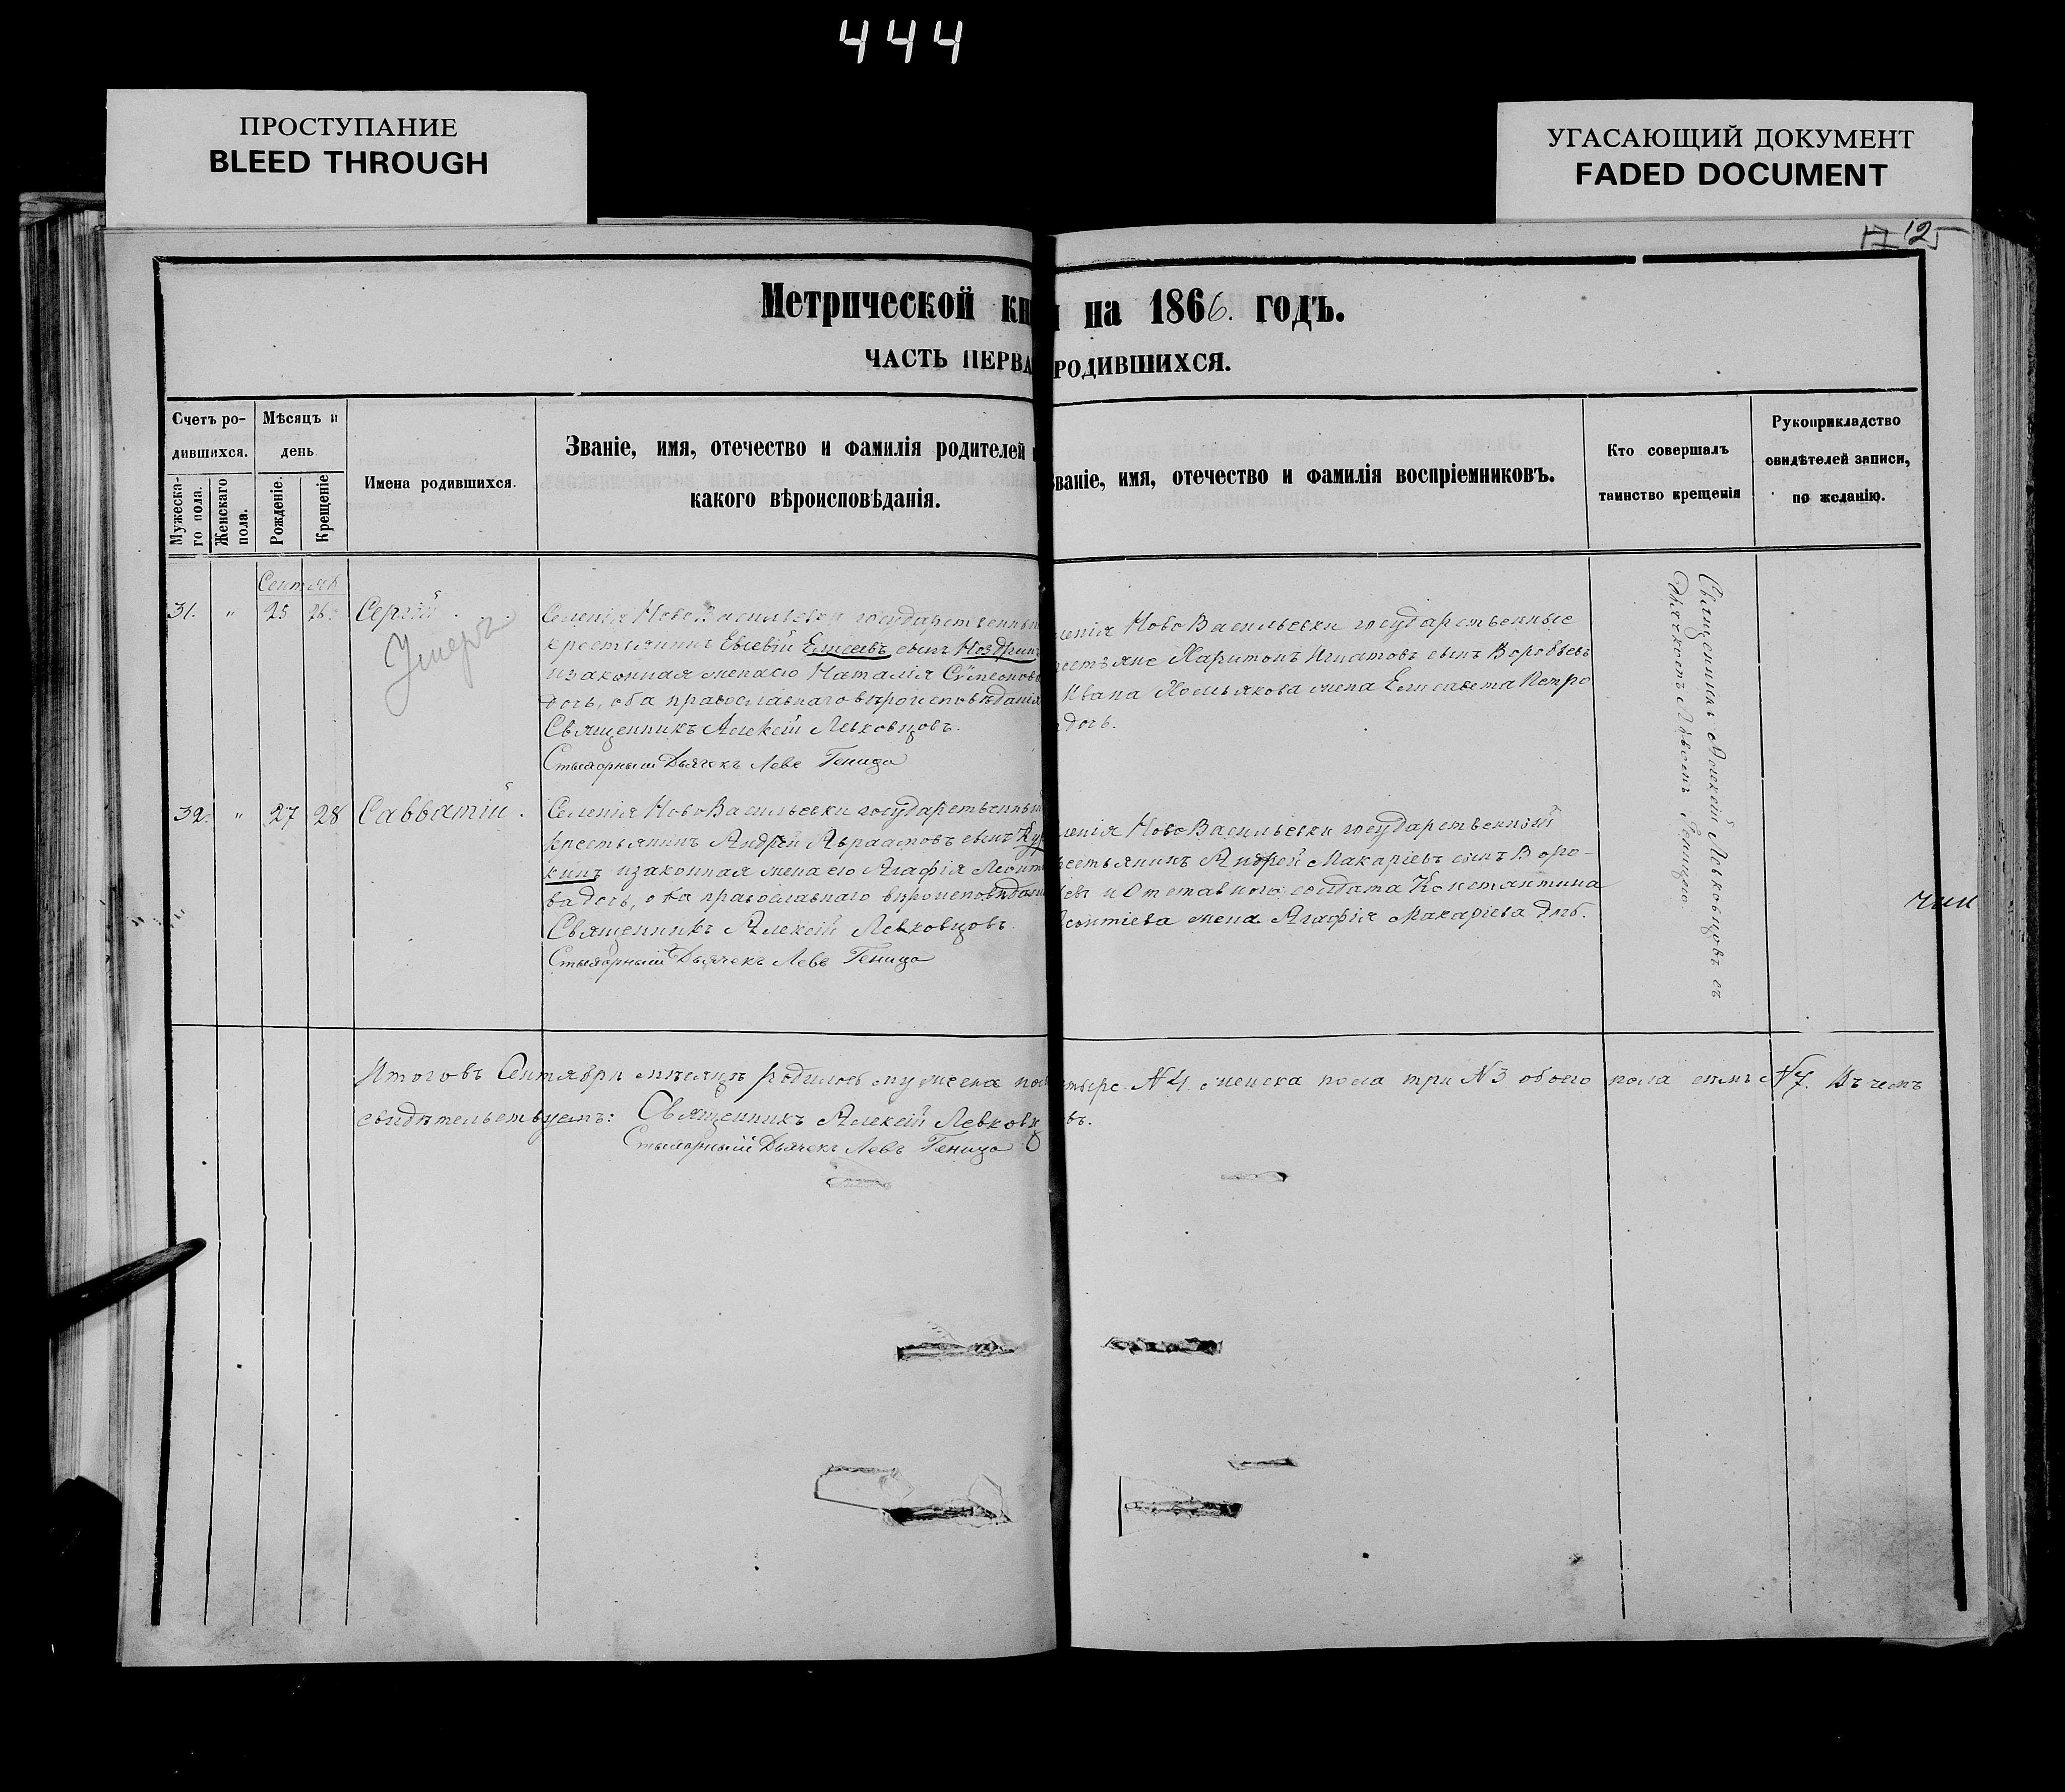 444
ПРОСТУПАНИЕ
BLEED THROUGH
УГАСАЮЩИЙ ДОКУМЕНТ
FADED DOCUMENT
125
Метрической кни на 1866. годъ.
ЧАСТЬ ПЕРВА РОДИВШИХСЯ.
Счетъ ро-
дившихся.
Мужеска-
го пола.
Женскаго
пола.
Мѣсяцъ и
день
Рожденіе.
Крещеніе
Имена родившихся.
Званіе, имя, отечество и фамилія родителей и
какого вѣроисповѣданія.
Званіе, имя, отечество и фамилія воспріемниковъ.
Кто совершалъ
таинство крещенія
Рукоприкладство
свидѣтелей записи,
по желанію.
Сентяб
31. " 25 26. Сергій.
Умеръ
Селенія НовоВасильевки государственный
крестьянинъ Евсевій Елисеевъ сынъ Ноздринъ
и законная жена его Наталія Сѵмеонова
дочь, оба православнаго вѣроисповѣданія
Священникъ Алексій Левковцовъ.
Дьячекъ Левъ Геница
ленія НовоВасильевки государственные
рестьяне Харитонъ Игнатовъ сынъ Воробьевъ
Ивана Хомьякова жена Елисавета Петро
дочь.
Священникъ Алексій Левковцовъ съ
Дьячкомъ Львомъ Геницею
32. " 27 28 Савватій.
Селенія НовоВасильевки государственный
крестьянинъ Андрей Авраамовъ сынъ Кур
кинъ и законная жена его Агафія Леонт
ва дочь, оба православнаго вѣроисповѣдані
Священникъ Алексій Левковцовъ.
Дьячекъ Левъ Геница
ленія НовоВасильевки государственный
рестьянинъ Андрей Макаріевъ сынъ Воро-
евъ и Отставнаго солдата Константина
Леонтіева жена Агафія Макаріева дочь.
чик
Итого въ Сентябрѣ мѣсяцѣ родилось мужеска пол тыре. N 4. женска пола три N 3 обоего пола семь N 7. Въ чемъ
свидѣтельствуемъ: Священникъ Алексій Левковц въ.
Дьячекъ Левъ Геница